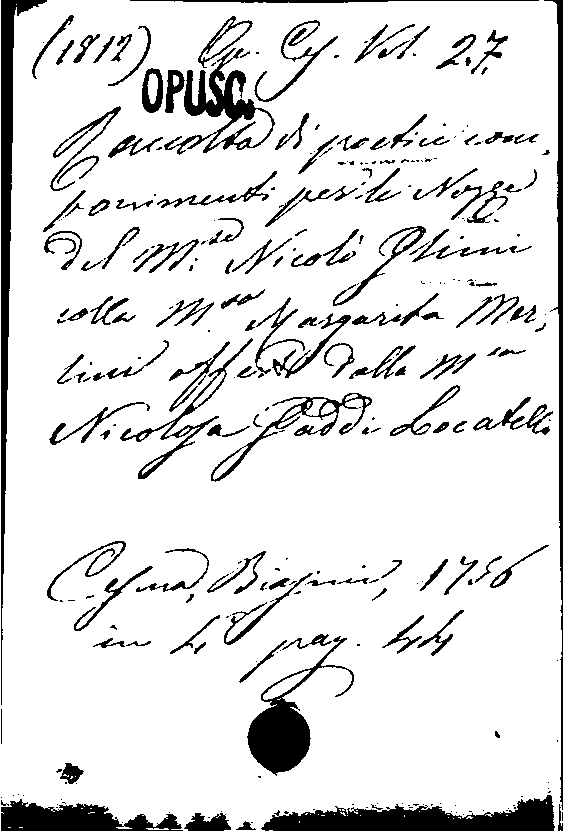 (1812) Op. Ces. Vol. 27.
OPUSC.
Raccolta di poetici com-
ponimenti per le Nozze
del M.se Nicolò Ghini
colla M.sa Margarita Mer-
lini offerti dalla M.sa
Nicolosa Gaddi Locatelli
Cesena, Biasini, 1756
in 4° pag. 44